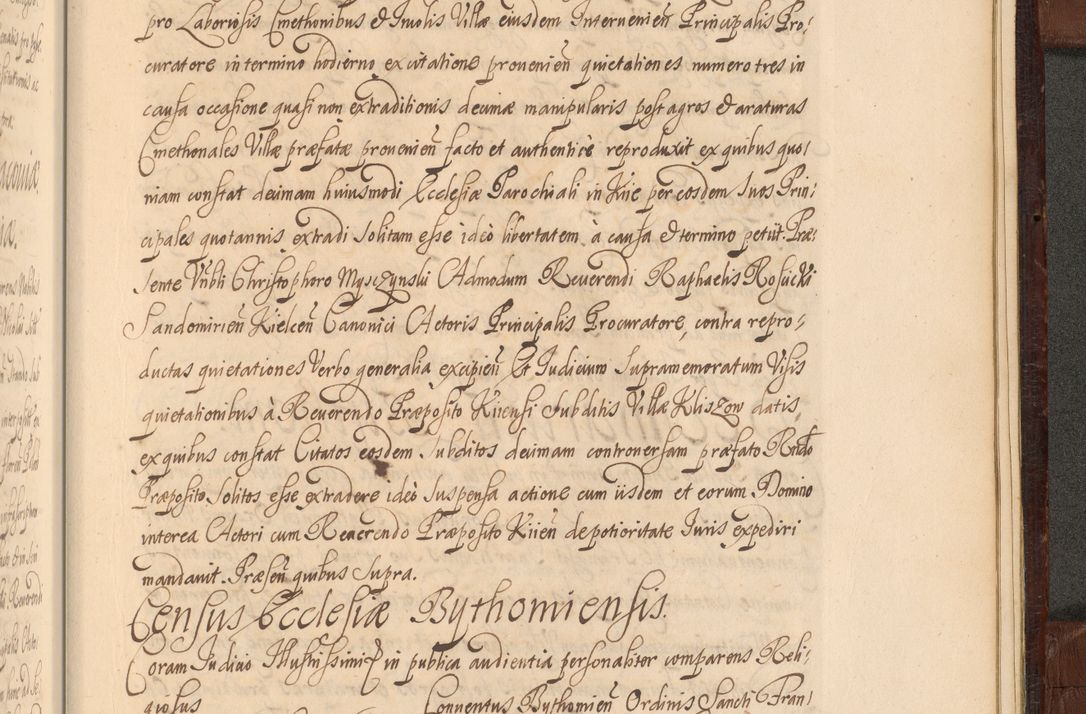 pro Laboriosis Cmethonibus et Inulis Villæ eiusdem Interuenien̄ Principalis Pro,
curatore in termino hodierno ex citatione prouenien̄ quietationes numero tres in
causa occasione quasi non extraditionis decimæ manipularis post agros et araturas
Cmethonales Villæ præfatæ prouenien̄ facto et authenticè reproduxit ex quibus quo,
niam constat decimam huiusmodi Ecclesiæ Parochiali in Kiie per eosdem suos Prin,
cipales quotannis extradi solitam esse ideò libertatem à causa et termino petiit. Præ,
sente Vn̄bli Christophoro Mysczynski Admodum Reuerendi Raphaelis Rosucki
Sandomirien̄ Kielcen̄ Canonici Actoris Principalis Procuratore, contra repro,
ductas quietationes Verbo generalia excipien̄ Et Iudicium supramemoratum Visis
quietationibus à Reuerendo Præposito Kiiensi subditis Villæ Kliszow datis,
ex quibus constat Citatos eosdem subditos decimam controuersam præfato Rndo
Præposito solitos esse extradere ideò suspensa actione cum iisdem et eorum Domino
interea Actori cum Reuerendo Præposito Kiien̄ de potioritate Iuris expediri
mandauit. Præsen̄ quibus supra.
Census Ecclesiæ Bythomiensis.
Coram Iudicio Illustrissimi in publica audientia personaliter comparens Reli,
giosus Conuentus Bythomien̄ Ordinis Sancti Fran,